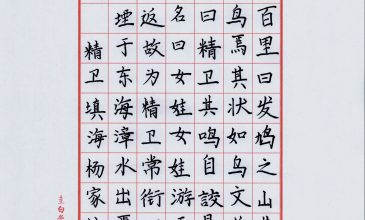 百里曰发鸠之山
鸟焉其状如乌文
曰精卫其鸣自詨
名曰女娃女娃游
返故为精卫常衔
堙于东海漳水出
精卫填海杨家